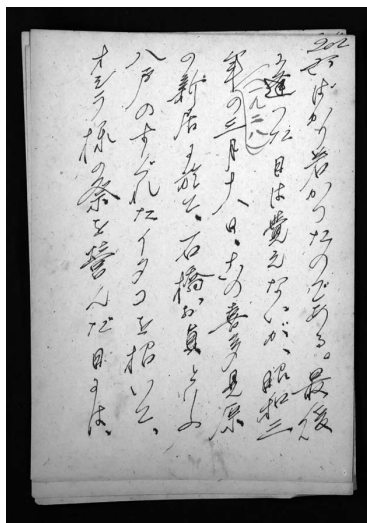 202
ばかり若かつたのである。最後に
逢つた日は覚えないが、昭和三
(一九二八)
年の三月十八日、この喜多見の原
の新居に於て、石橋お貞といふ
八戸のすぐれたイタコを招いて、
オシラ様の祭を営んだ日には、